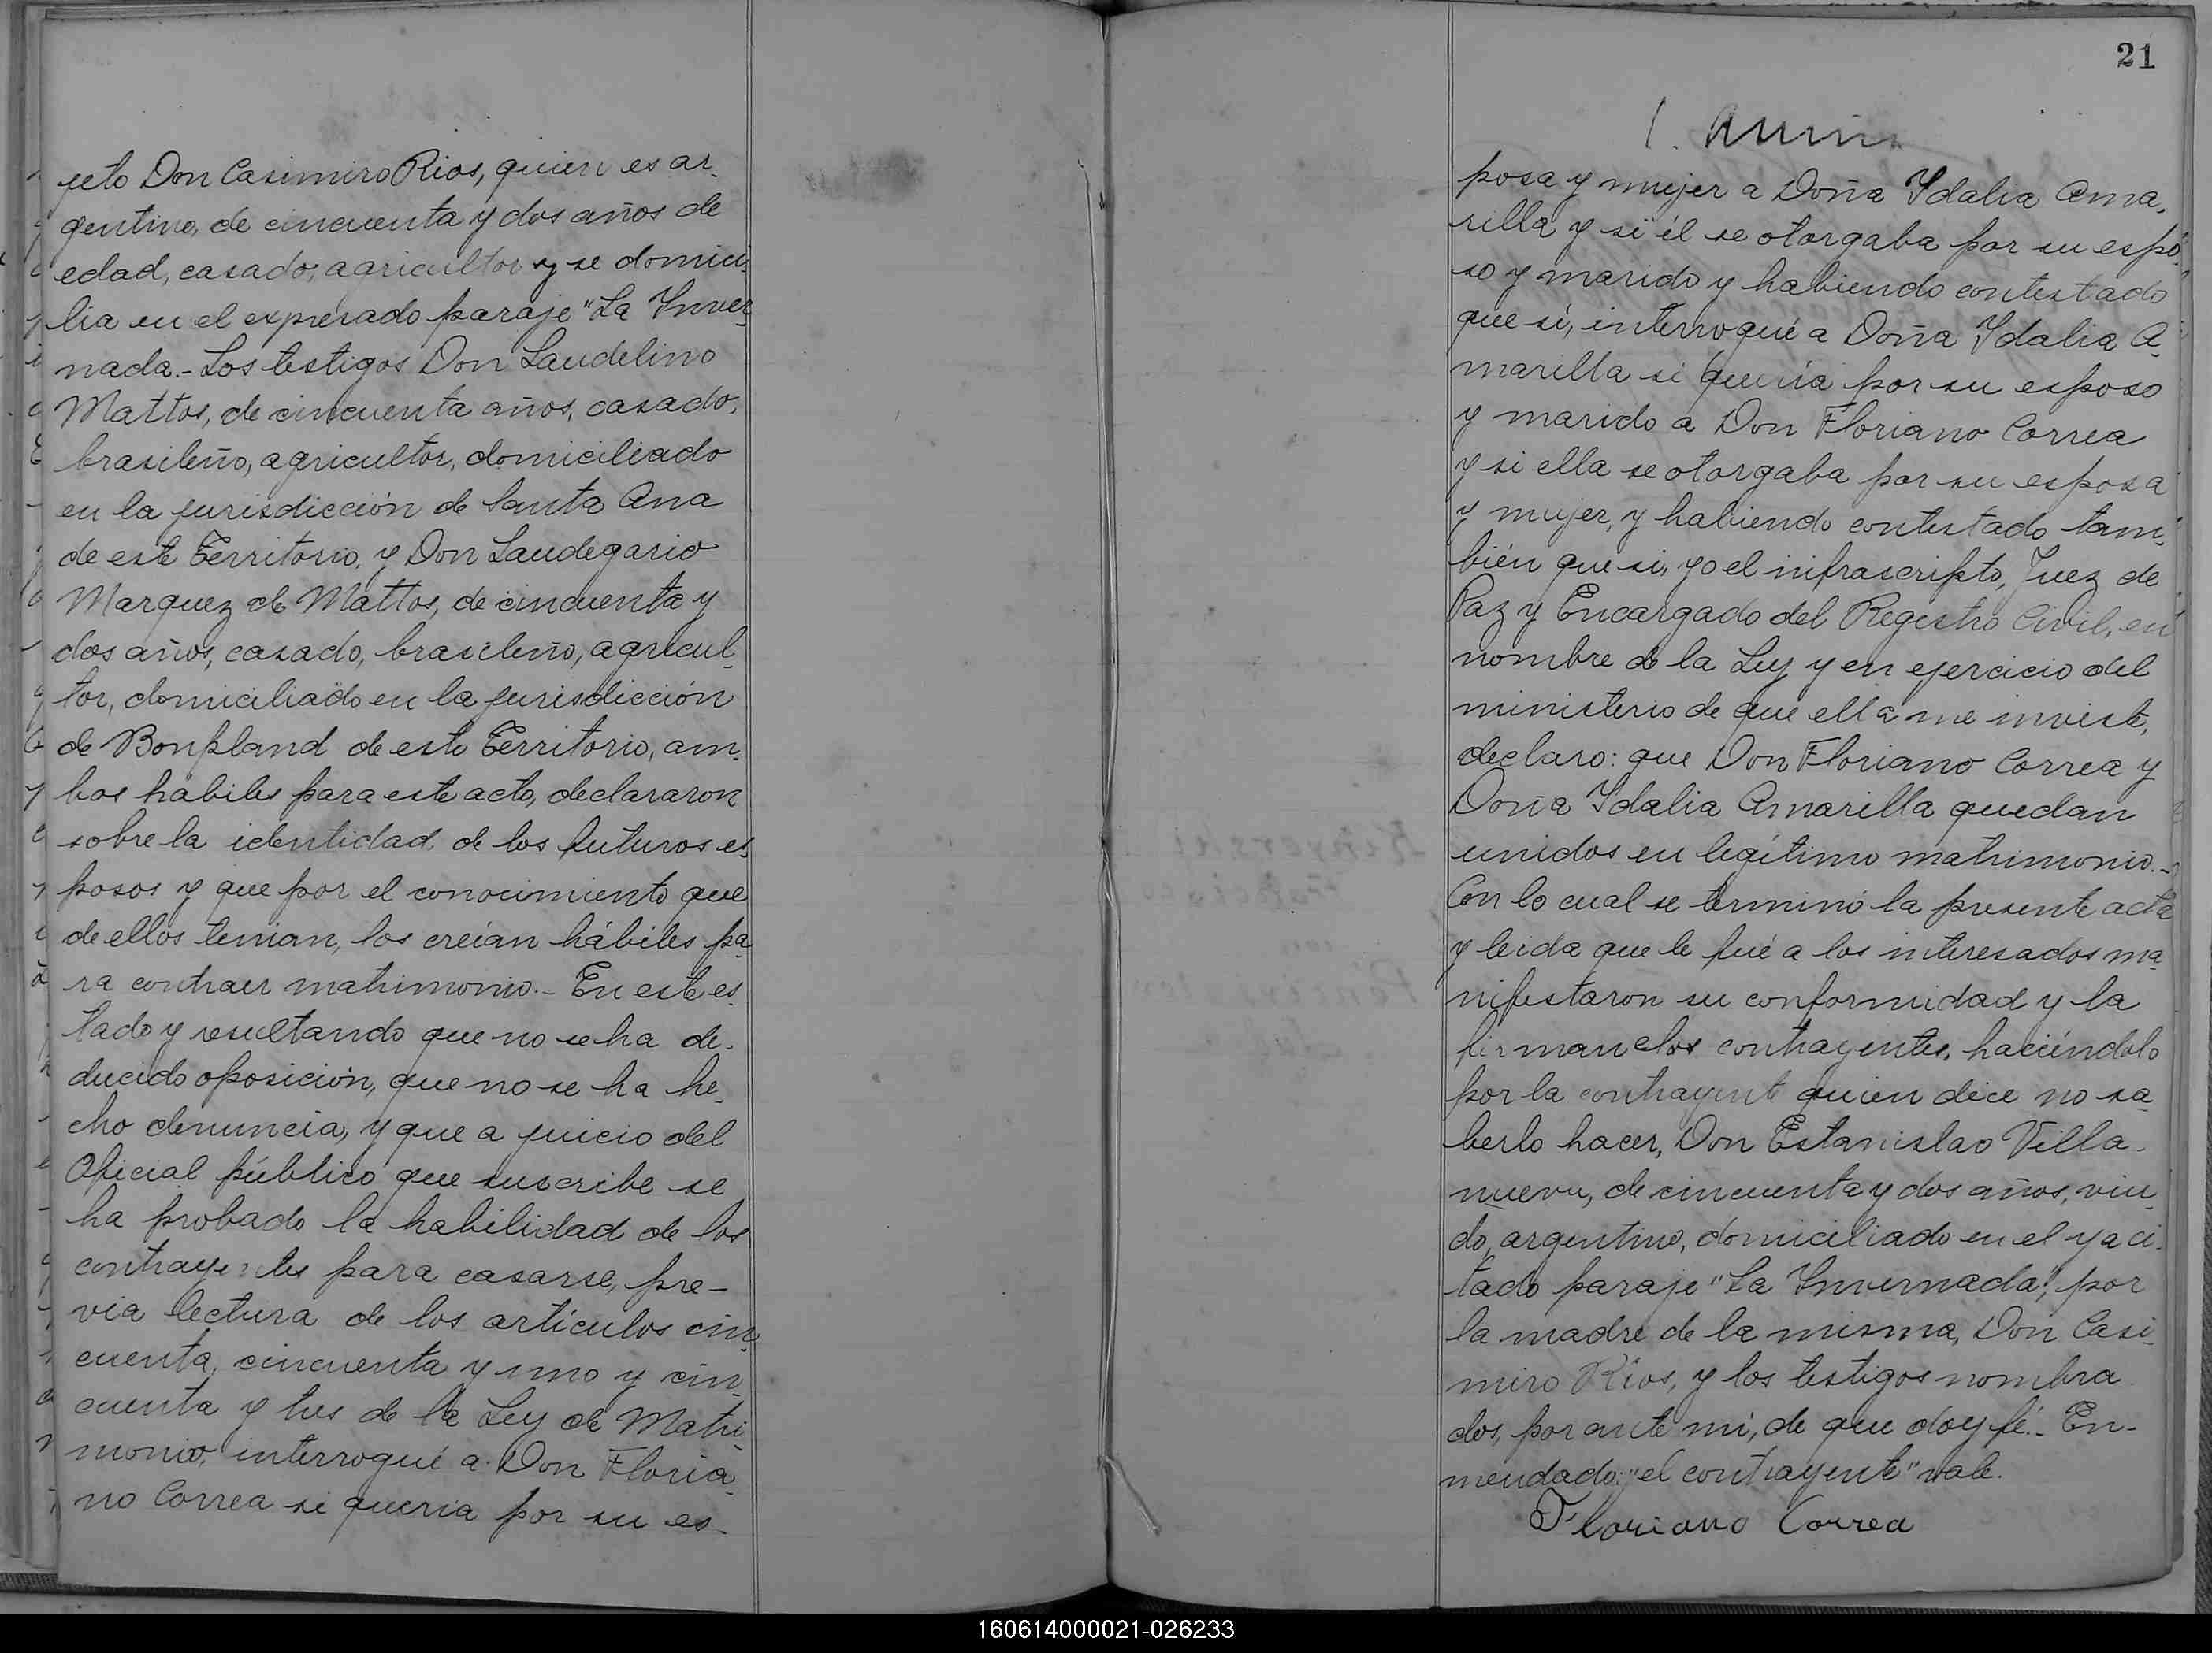 jeto Don Casimiro Rios, quien es ar-
gentino, de cincuenta y dos años de
edad, casado, agricultor y se domici-
lia en el expresado paraje "La Inver-
nada.- Los testigos Don Laudelino
Mattos, de cincuenta años, casado,
brasileño, agricultor, domiciliado
en la jurisdicción de Santa Ana
de este Territorio, y Don Laudegario
Marquez de Mattos, de cincuenta y
dos años, casado, brasileño, agricul-
tor, domiciliado en la jurisdicción
de Bonpland de este Territorio, am-
bos hábiles para este acto, declararon
sobre la identidad de los futuros es-
posos y que por el conocimiento que
de ellos tenían, los creían hábiles pa-
ra contraer matrimonio.- En este es-
tado y resultando que no se ha de-
ducido oposición, que no se ha he-
cho denuncia, y que a juicio del
Oficial público que suscribe se
ha probado la habilidad de los
contrayentes para casarse, pre-
via lectura de los artículos cin-
cuenta, cincuenta y uno y cin-
cuenta y tres de la Ley de Matri-
monio, interrogué a Don Floria-
no Correa si queria por su es-
21
posa y mujer a Doña Ydalia Ama-
rilla y si él se otorgaba por su espo-
so y marido y habiendo contestado
que sí, interrogué a Doña Ydalia A-
marilla si quería por su esposo
y marido a Don Floriano Correa
y si ella se otorgaba por su esposa
y mujer, y habiendo contestado tam-
bién que si, yo el infrascripto, Juez de
Paz y Encargado del Registro Civil, en
nombre de la Ley y en ejercicio del
ministerio de que ella me inviste,
declaro: que Don Floriano Correa y
Doña Ydalia Amarilla quedan
unidos en legítimo matrimonio.-
Con lo cual se terminó la presente acta
y leida que le fué a los interesados ma-
nifestaron su conformidad y la
firman los contrayentes, haciéndolo
por la contrayente quien dice no sa-
berlo hacer, Don Estanislao Villa-
nueva, de cincuenta y dos años, viu-
do, argentino, domiciliado en el ya ci-
tado paraje "La Invernada", por
la madre de la misma, Don Casi-
miro Rios, y los testigos nombra-
dos, por ante mi, de que doy fé.- En-
mendado: "el contrayente" vale.
Floriano Correa
160614000021-026233